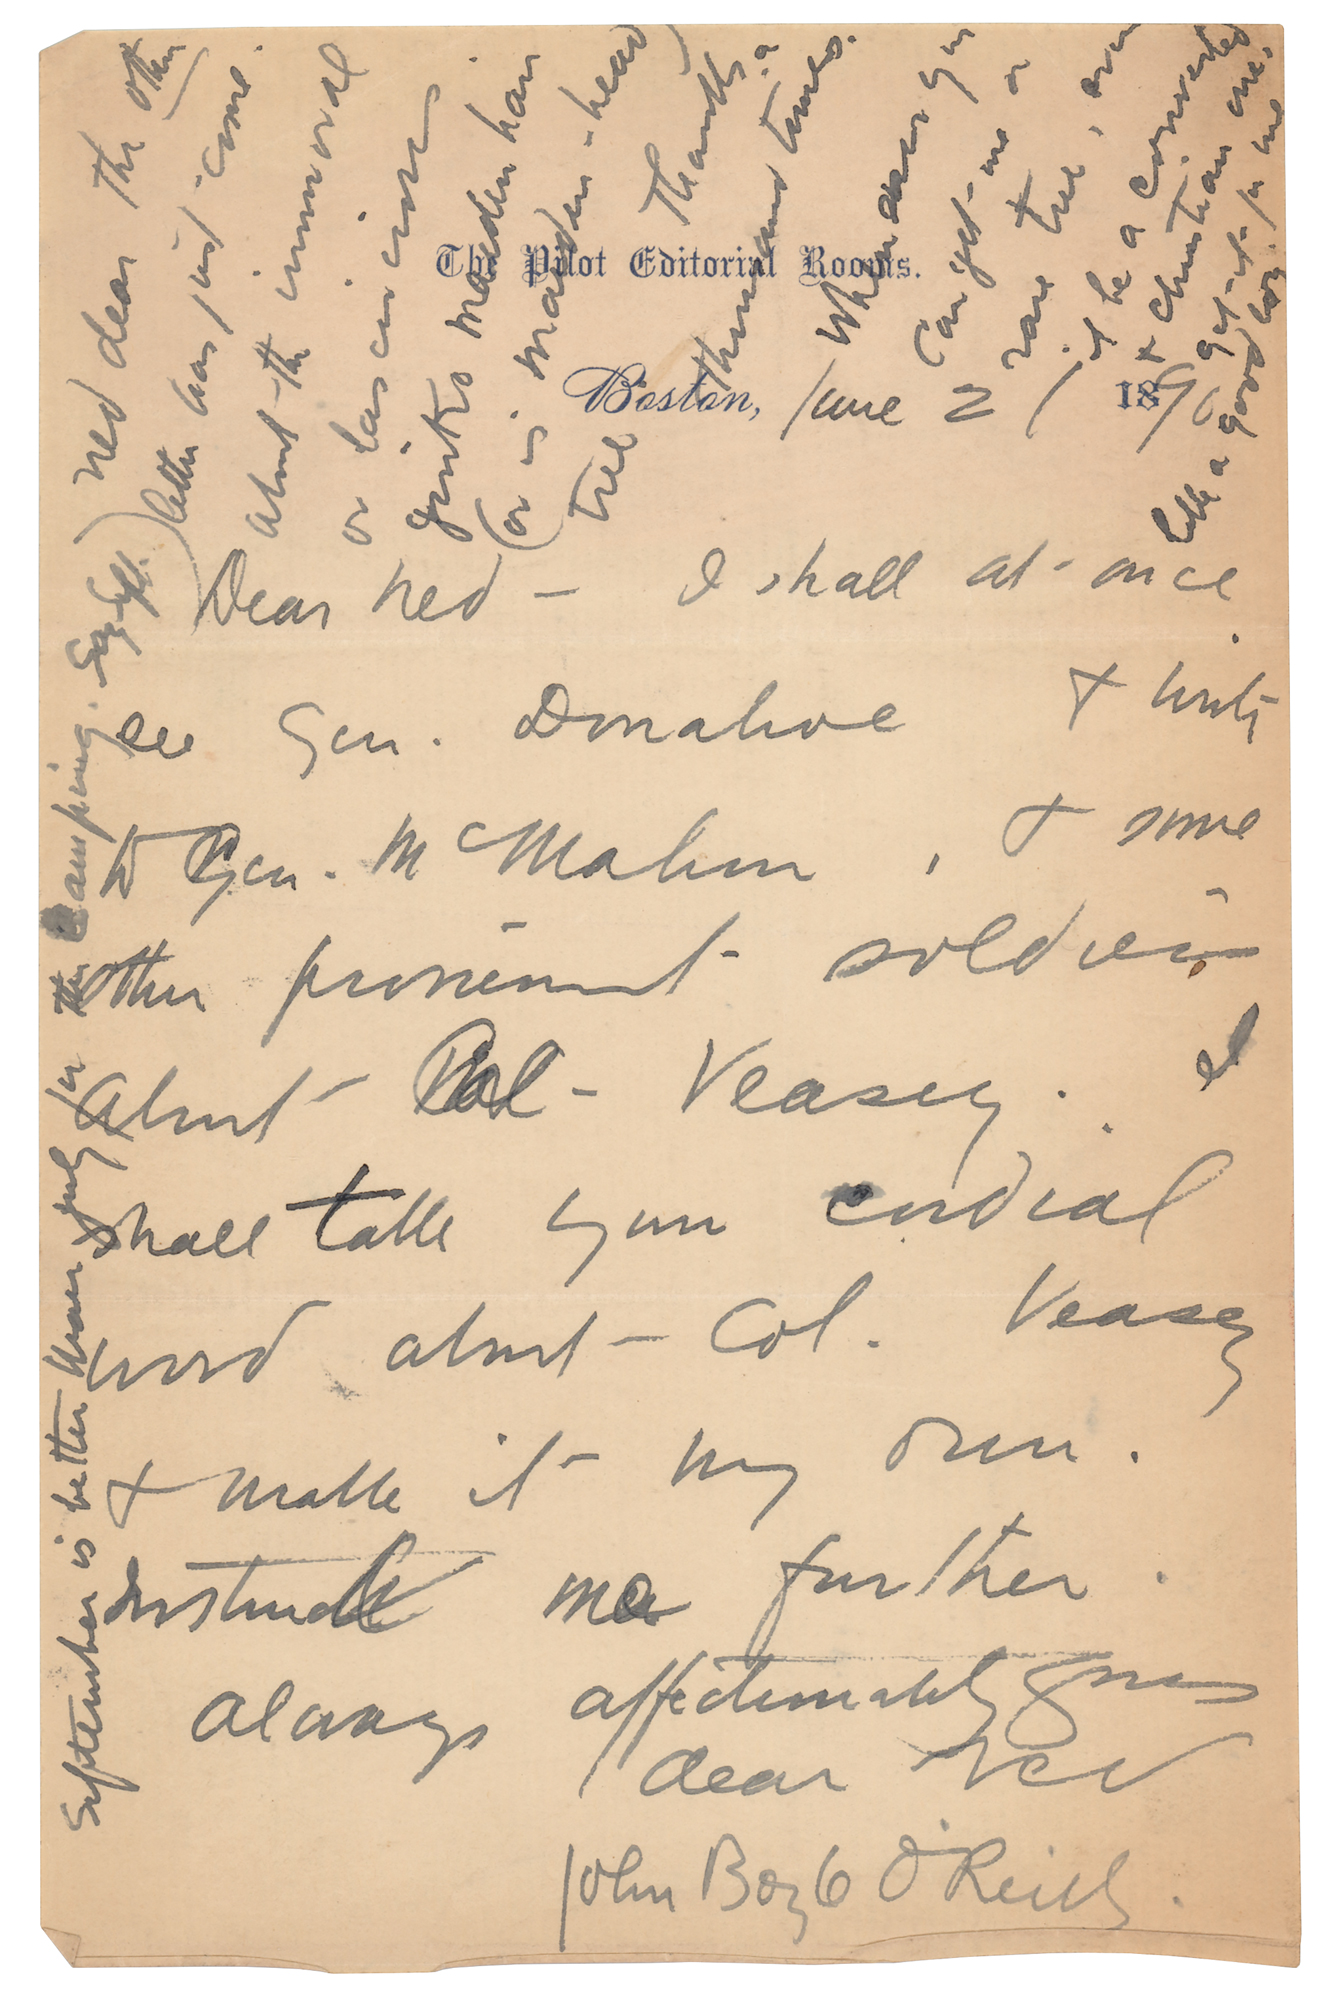 The Pilot Editorial Rooms.
Boston, June 2 1890
Dear Ned – I shall at once
see Gen. Donahoe & write
to Gen. McMahon, & some
other prominent soldiers
about Col – Veasey. I
shall take your cordial
word about Col. Veasey
& make it my own.
Instruct me further.
Always affectionately yours
dear Ned
John Boyle O'Reilly.
Ned dear the other
letter has just come.
about the immoral
or lascivious
ginks maiden hair
(or is. maiden-head)
tree Thanks a
thousand times.
Whenever you
can get me a
rare tree, even
if he be a converted
& Christian one,
get it for me
like a good boy.
September is better than July for the camping. Say Sept.